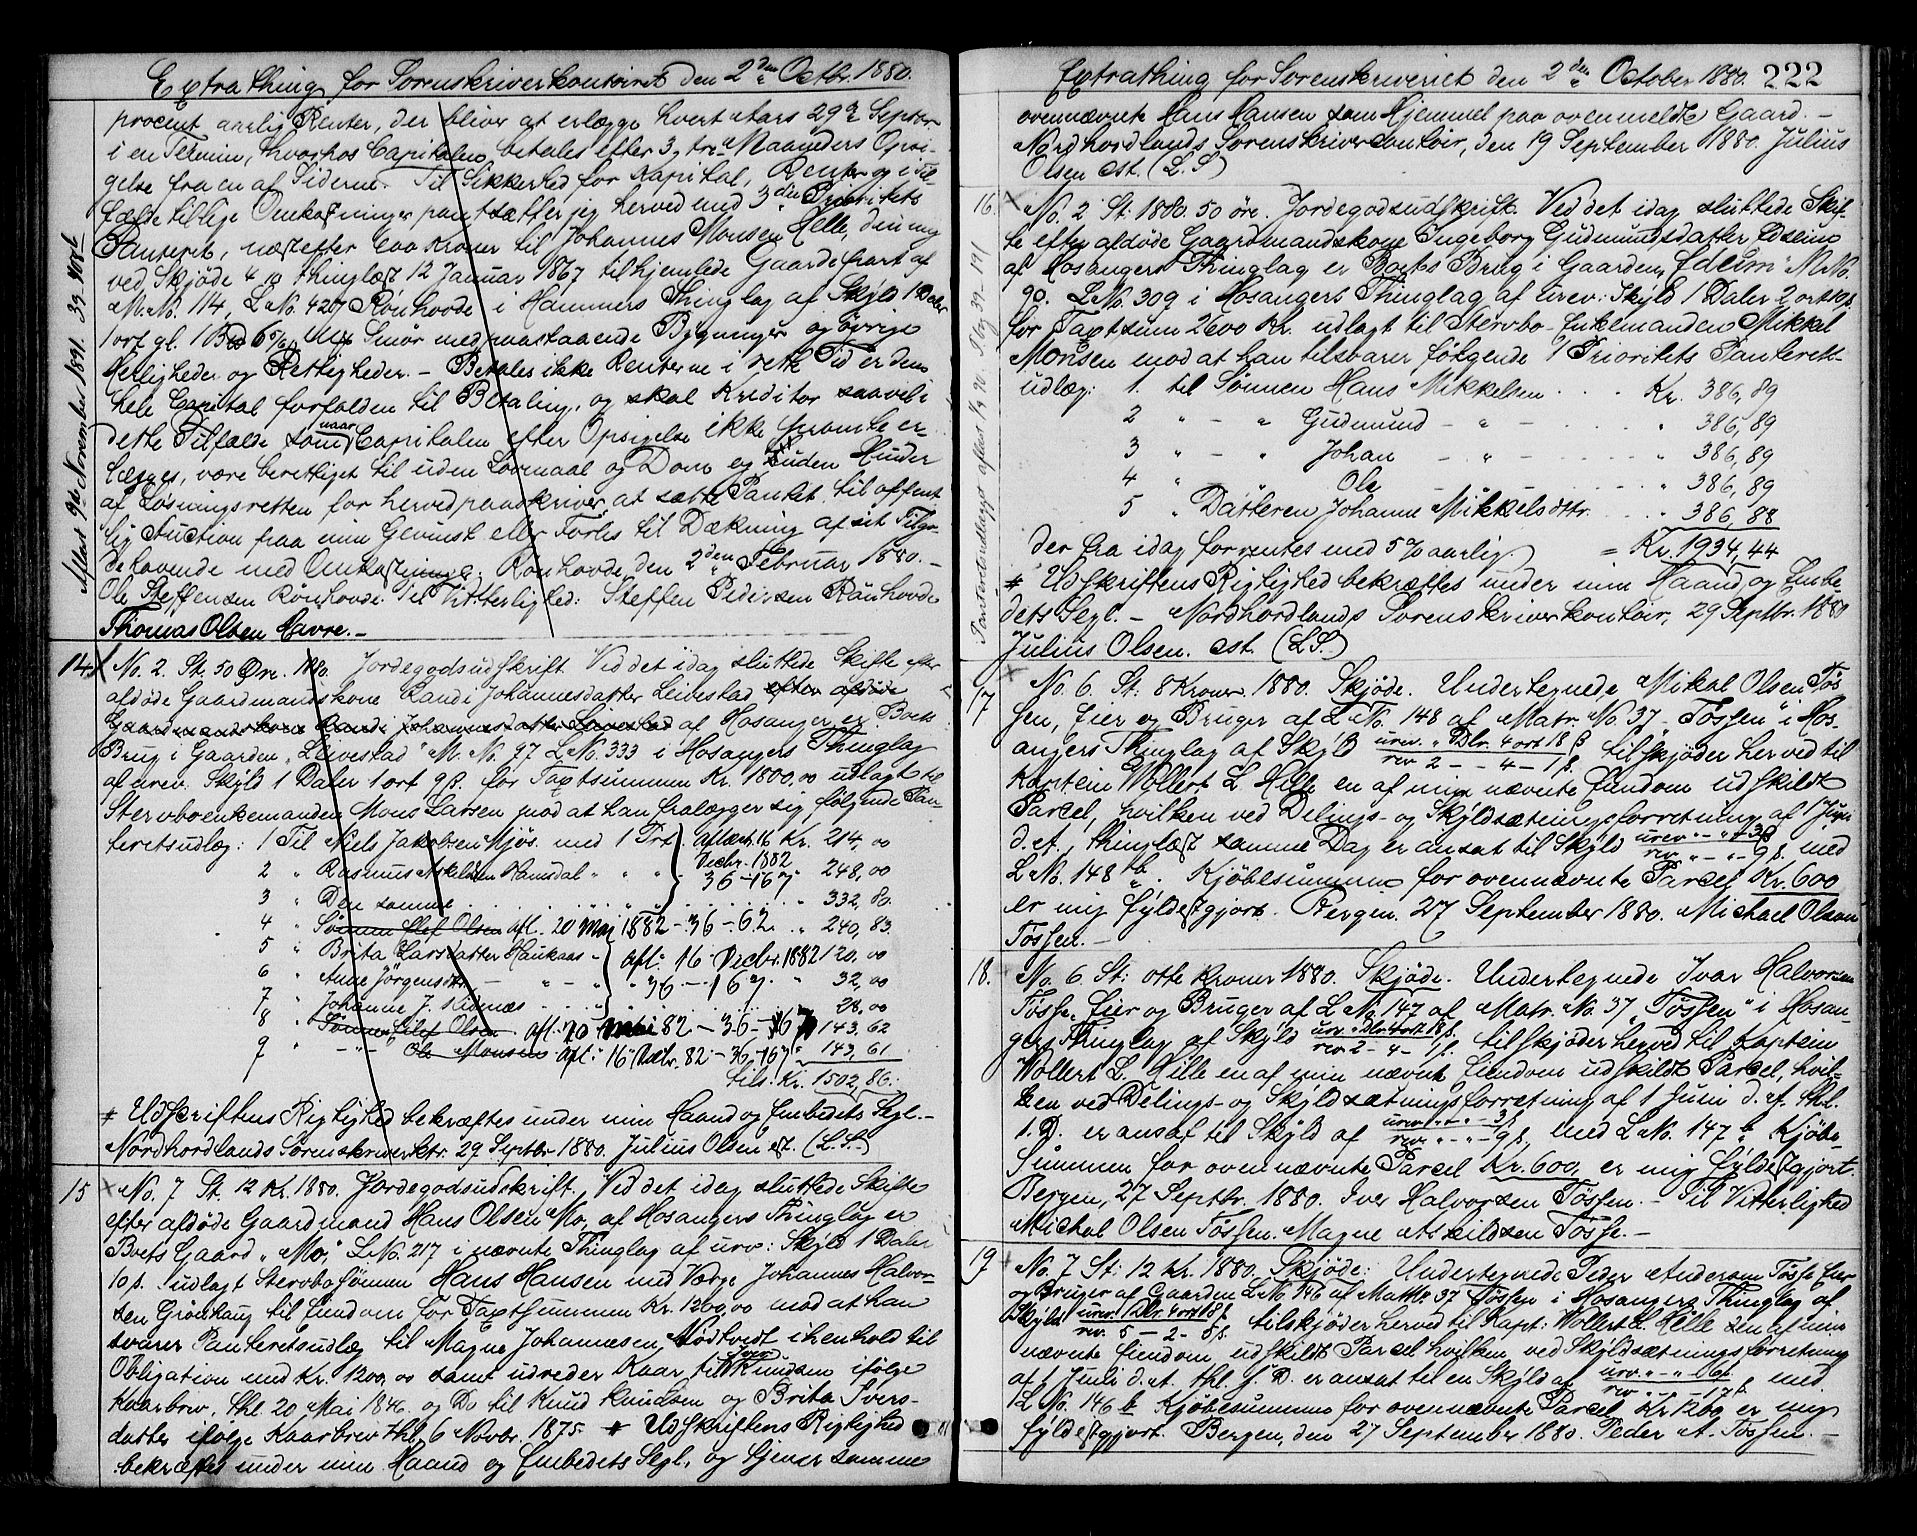 Extrathing for Sorenskriverkontoiret den 2den Octbr. 1880.
procent aarlig Renter, der bliver at erlægge hvert Aars 29de Septbr.
i en Termin, hvorhos Capitalen betales efter 3, tre Maaneders Opsi-
gelse fra en af Siderne. Til Sikkerhed for Kapital, Renter og i Til-
fælde tillige Omkostninger pantsætter jeg herved med 3die Prioritets
Panteret, næstefter 600 Kroner til Johannes Monsen Helle, den mig
ved Skjøde thinglæst 12 Januar 1867 tilhjemlede Gaardepart af
M. No. 114, L No. 420 Rønhovde i Hammers Thinglag af Skyld 1 Daler
1 ort gl. 1 Smør med paastaaende Bygninger og øvrige
Herligheder og Rettigheder. – Betales ikke Renterne i rette Tid er den
hele Capital forfalden til Betaling, og skal Kreditor saavel i
dette Tilfælde som naar Capitalen efter Opsigelse ikke promte er-
lægges, være berettiget til uden Lovmaal og Dom og uden Hinder
af Løsningsretten for herved paaskriver, at sætte Pantet til offent
lig Auction paa min Gevinst eller Forlis til Dækning af sit Tilgo-
dehavende med Omkostninger. Rønhovde den 2den Februar 1880. –
Ole Steffensen Rønhovde. Til Vitterlighed: Steffen Pedersen Rønhovde
Thomas Olsen Havre. –
Aflæst 9de November 1891. 39.
14. No. 2. St. 50 Øre. 1880. Jordegodsudskrift. Ved det idag sluttede Skifte efter
afdøde Gaardmandskone Randi Johannesdatter Leivestad efter afdøde
Gaardmandskone Randi Johannesdatter Leivestad af Hosanger er Boets
Brug i Gaarden „Leivestad" M. No. 97 L No. 333 i Hosangers Thinglag
af urev. Skyld 1 Daler 1 ort 9 β. for Taxtsummen Kr. 1800,00 udlagt til
Stervboenkemanden Mons Larsen mod at han fralægger sig følgende Pan-
teretsudlæg: 1 Til Niels Jakobsen Mjøs. med 1 Prt. aflæst 16 Kr. 214,00
2 „ Rasmus Askeldsen Hamsdal „ „ Decbr. 1882 „ 248,00
36 – 167
3 „ Den samme . . . „ 332,80.
4 „ Sønnen Olsen afl. 20 Mai 1882 – 36 – 62. „ 240,83.
5 „ Brita Larsdatter Haukaas – afl: 16 Decbr. 1882 120,00
6 „ Anne Jörgensdtr. – „ – „ 36 – 167. „ 32,00
7 „ Johanne J. Eidsnæs . . . 28,00
8 „ Sønnen Olsen afl. 20 Mai 82 – 36 – 143,62
9 „ – „ – Ole Monsen afl: 16 Decbr. 82 – 36 – 167 143,61
tils. Kr. 1502,86.
# Udskriftens Rigtighed bekræftes under min Haand og Embedets Segl. –
Nordhordlands Sørenskriverktr. 29 Septbr 1880. Julius Olsen cst. (L. S.)
15 No. 7 St. 12 Kr. 1880. Jordegodsudskrift. Ved det idag sluttede Skifte
efter afdøde Gaardmand Hans Olsen Mo, af Hosangers Thinglag er
Boets Gaard „Mo", L No. 217 i nævnte Thinglag af urv: Skyld 1 Daler
10 β. udlagt Stervbosønnen Hans Hansen med Værge Johannes Halvor-
sen Grønhaug til Eiendom for Taxtsummen Kr. 1200,00 mod at han
svarer Panteretsudlæg til Magne Johannesen Nødtvedt i henhold til
Obligation med Kr. 1200,00 samt udreder Kaar til Iver Knudsen ifølge
Kaarbrev, thl. 20 Mai 1846 og Do til Knud Knudsen og Brita Ivers-
datter ifølge Kaarbrev thl. 6 Novbr. 1875. # Udskriftens Rigtighed
bekræftes under min Haand og Embedets Segl, og tjener samme
Extrathing for Sorenskriveriet den 2den October 1880. 222
ovennævnte Hans Hansen som Hjemmel paa ovenmeldte Gaard. –
Nordhordlands Sorenskrivercontoir, den 19 September 1880. Julius
Olsen cst. (L. S)
16. No. 2 St: 1880. 50 öre. Jordegodsudskrift. Ved det idag sluttede Skif-
te efter afdöde Gaardmandskone Ingeborg Gudmundsdatter Edseim
af Hosangers Thinglag er Boets Brug i Gaarden „Edeim" M. No.
90. L No. 309 i Hosangers Thinglag af urev: Skyld 1 Daler 2 ort 10 β.
for Taxtsum 2600 Kr. udlagt til Stervbo-Enkemanden Mikkel
Monsen mod at han tilsvarer følgende 1 Prioritets Panterets-
udlæg: 1. til Sønnen Hans Mikkelsen . . . Kr. 386,89
2 „ – „ Gudmund – „ – „ 386,89
3 „ – „ Johan – „ – „ 386,89
4 „ Ole – „ 386,89
5 „ Datteren Johanne Mikkelsdtr. . . „ 386,88
der fra idag forrentes med 5 % aarlig = Kr. 1934,44
# Udskriftens Rigtighed bekræftes under min Haand og Embe-
dets Segl. – Nordhordlands Sorenskriverkontoir, 29 Septbr. 1880
Julius Olsen. cst. (L.S.)
Panteretsudlægget aflæst 90. 39 – 191
17 No. 6. St: 8 Kroner. 1880. Skjøde. Undertegnede Mikal Olsen Tös-
sen, Eier og Bruger af L No. 148 af Matr. No. 37 „Tössen" i Hos-
angers Thinglag af Skyld urev. „ Dlr. 4 ort 18 β / rev 2 – 4 – 1 β. tilskjøder herved til
Kaptein Wollert L Hille en af min nævnte Eiendom udskildt
Parcel, hvilken ved Delings- og Skyldsætningsforretning af 1 Juni
d. A., thinglæst samme Dag er ansat til Skyld urev „ – „ – 3 β / rev. „ – „ – 9 β. med
L No. 148 b. Kjøbesummen for ovennævnte Parcel Kr. 600
er mig fyldestgjort. Bergen. 27 September 1880. Michael Olsen
Tössen. –
18. No. 6. St: otte Kroner 1880. Skjøde. Undertegnede Ivar Halvorsen
Tösse, Eier og Bruger af L No. 147 af Matr. No. 37 „Tössen" i Hosan-
gers Thinglag af Skyld urv. „ Dlr 4 ort 18 β. / rev 2 – 4 – 1 β. tilskjøder herved til Kaptein
Wollert L. Hille en af min nævnte Eiendom udskildt Parcel, hvil-
ken ved Delings- og Skyldsætningsforretning af 1 Juni d. A. thl.
s. D. er ansat til Skyld af urev. „ – „ – 3 β / rev. „ – „ – 9 β., med L No. 147 b Kjöbe
Summen for ovennævnte Parcel Kr. 600, er mig fyldestgjort.
Bergen, 27 Septbr. 1880. Iver Halvorsen Tössen. Til Vitterlighed
Michal Olsen Tössen. Magne Askildsen Tösse. –
19 No. 7 St: 12 Kr. 1880. Skjøde: Undertegnede Peder Andersen Tösse Eier
og Bruger af Gaarden L No 146 af Matr. No. 37 Tössen i Hosangers Thinglag af
Skyld urev. 1 Dlr. 4 ort 18 β / rev. 5 – 2 – 5 β. tilskjøder herved til Kapt: Wollert L. Hille den af min
nævnte Eiendom udskildt Parcel hvilken ved Skyldsætningsforretning
af 1 Juni d. A. thl. s. D. er ansat til en Skyld af urv. „ – „ – 6 β. / rev „ – „ – 17 β. med
L No. 146 b Kjøbesummen for ovennævnte Parcel Kr 1200 er mig
fyldestgjort. Bergen, den 27 September 1880. Peder A. Tössen. –